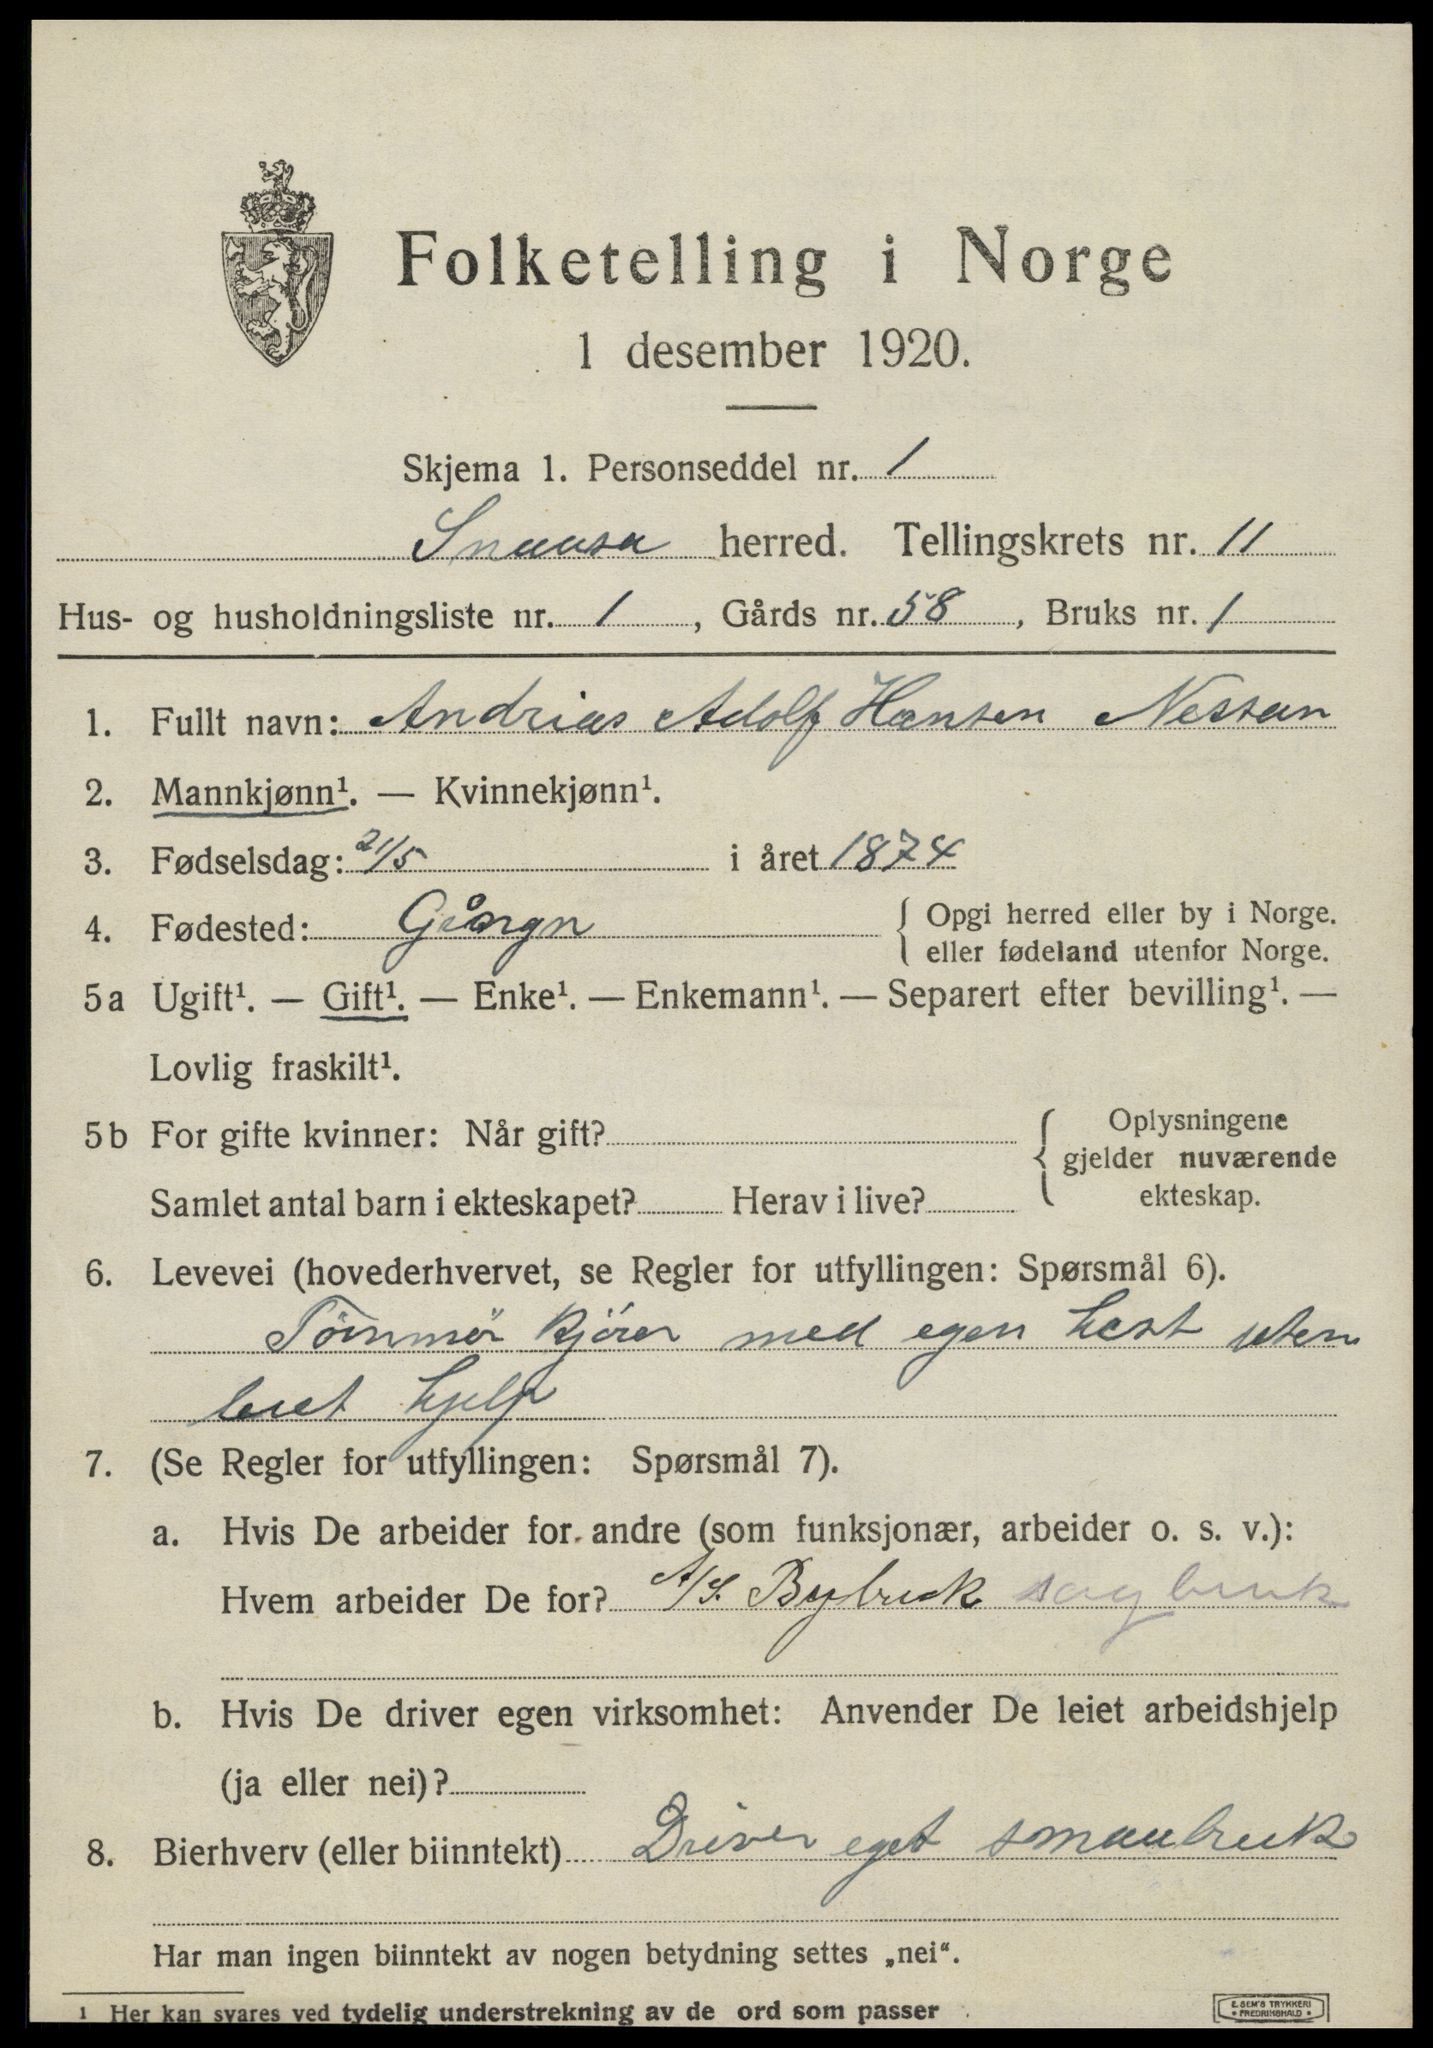 Folketelling i Norge
1 desember 1920.
Skjema 1. Personseddel nr. 1
Snaasa herred. Tellingskrets nr. 11
Hus- og husholdningsliste nr. 1, Gårds nr. 58, Bruks nr. 1
1. Fullt navn: Andrias Adolf Hansen Nessan
2. Mannkjønn¹. — Kvinnekjønn¹.
3. Fødselsdag: 21/5 i året 1874
4. Fødested: { Opgi herred eller by i Norge.
eller fødeland utenfor Norge.
5a Ugift¹. — Gift¹. — Enke¹. — Enkemann¹. — Separert efter bevilling¹. —
Lovlig fraskilt¹.
5b For gifte kvinner: Når gift? { Oplysningene
gjelder nuværende
Samlet antal barn i ekteskapet? Herav i live? ekteskap.
6. Levevei (hovederhvervet, se Regler for utfyllingen: Spørsmål 6).
Tömmör kjörer med egen hest uten
leiet hjelp
7. (Se Regler for utfyllingen: Spørsmål 7).
a. Hvis De arbeider for andre (som funksjonær, arbeider o. s. v.):
Hvem arbeider De for? A/S. Bybruk sagbruk
b. Hvis De driver egen virksomhet: Anvender De leiet arbeidshjelp
(ja eller nei)?
8. Bierhverv (eller biinntekt) Driver eget smaabruk
Har man ingen biinntekt av nogen betydning settes „nei“.
1 Her kan svares ved tydelig understrekning av de ord som passer
E. SEM'S TRYKKERI
• FREDRIKSHALD •